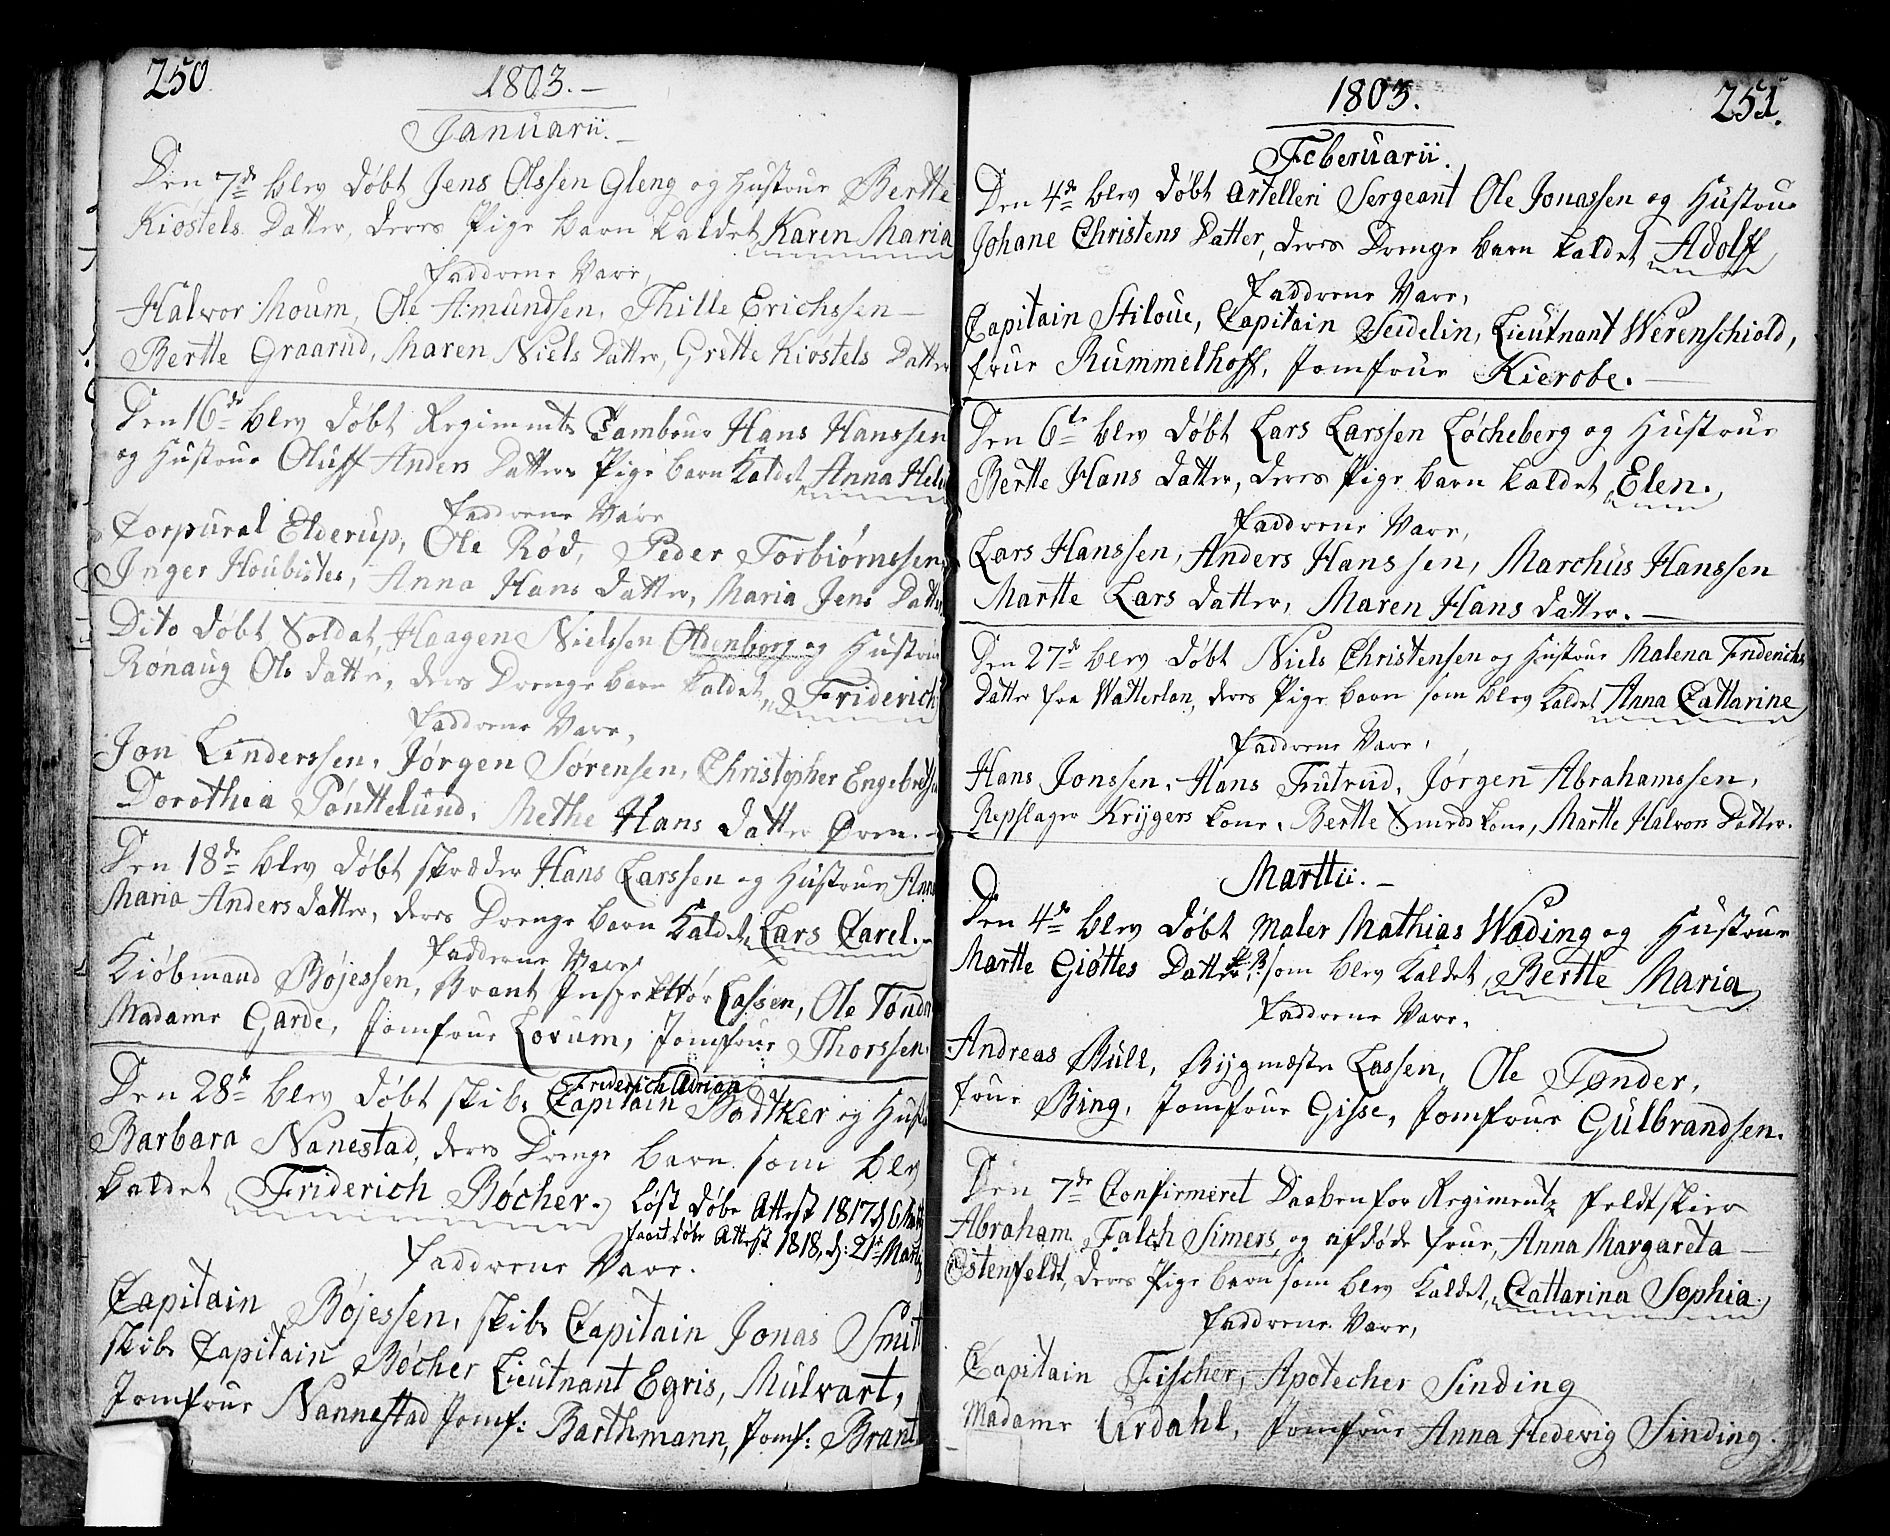 250
1803.
Januarii.
Den 7de blev døbt Jens Olssen Gleng og Hustrue Bertte
Kiostels Datter, deres Pige barn kaldet Karen Maria
Faddrene Vare,
Halvor Moum, Ole Amundsen, Thille Erichssen
Bertte Graarud, Maren Niels Datter, Grette Kiostels Datter
Den 16de blev døbt Regiments Tambour Hans Hanssen
og Hustrue Oluff Anders Datters Pige barn kaldet Anna Hele
Faddrene Vare
Corpural Elderup, Ole Rød, Peder Torbiørnssen,
Inger Houbistes, Anna Hans Datter, Maria Jens Datter
Dito døbt Soldat, Haagen Nielssen Oldenborg og Hustrue
Rønaug Ols datter, deres Drenge barn kaldet, Friderich
Faddrene Vare,
Jon Linderssen, Jørgen Sørensen, Christopher Engebretsen
Dorothea Ponttelund, Methe Hans Datter Øren.
Den 18de blev døbt skredder Hans Larssen og Hustrue Anne
Maria Anders datter, deres Drenge barn kaldet Lars Carel.
Faddrene Vare,
Kiøbmand Bøjessen, Brant Inspekttør Lassen, Ole Tønder
Madame Garde, Jomfrue Lorum, Jomfrue Thorssen.
Friderich Adrian
Den 28de blev døbt skibs Capitain Bødtker og Hustrue
Barbara Nanestad, deres Drenge barn som blev
kaldet Friderich Bøcher. Løst døbe Attest 1817 d 6 Martz
faaet døbe Attest 1818, d: 21de Martz
Faddrene Vare.
Capitain Bøjessen, skibs Capitain Jonas Smit
skibs Capitain Bøcher Lieutnant Egris, Mulvart,
Jomfrue Nannestad Jomf: Barthmann, Jomf: Brant
1803. 251.
Feberuarii.
Den 4de blev døbt Artelleri Sergeant Ole Jonassen og Hustrue
Johane Christens Datter, deres Drenge barn kaldet Adolff
Faddrene Vare,
Capitain Stiloue, Capitain Seidelin, Lieutnant Werenschiold,
frue Rummelhoff, Jomfrue Kierobe.
Den 6te blev døbt Lars Larssen Løcheberg og Hustrue
Bertte Hans Datter, deres Pige barn kaldet Elen.
Faddrene Vare,
Lars Hanssen, Anders Hanssen, Marchus Hanssen
Martte Lars datter, Maren Hans datter.
Den 27de blev døbt Niels Christensen og Hustrue Malena Friderichs
Datter fra Watterlan, deres Pige barn som blev kaldet Anna Cattarine
Faddrene Vare,
Hans Jonssen, Hans Frutrud, Jørgen Abrahamssen,
Repslager Krygers kone, Bertte Smeds kone, Martte Halvors Datter.
Marttii.
Den 4de blev døbt Maler Mathias Wading og Hustrue
Martte Giøttes Datter P:B: som blev kaldet, Bertte Maria
Faddrene Vare,
Andreas Bull, Bygmester Lassen, Ole Tønder,
frue Bing, Jomfrue Gisse, Jomfrue Gulbrandsen.
Den 7de Confirmeret Daaben for Regiments feldtskier
Abraham Falch Simers, og afdøde frue, Anna Margareta
Ostenfeldt, deres Pige barn som blev kaldet, Cattarina Sophia
Faddrene Vare,
Capitain Fischer, Apotecher Sinding
Madame Urdahl, Jomfrue Anna Hedevig Sinding.